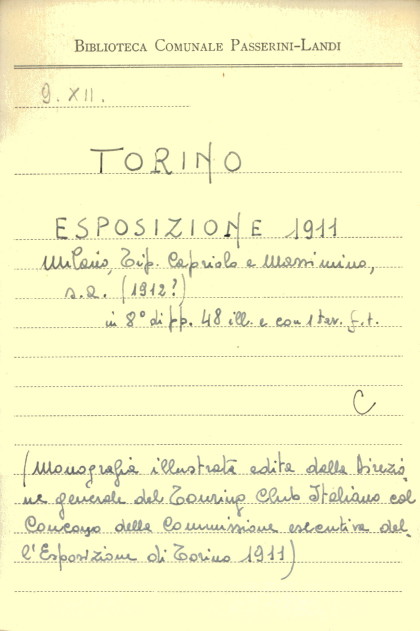 BIBLIOTECA COMUNALE PASSERINI-LANDI
9. XII.
TORINO
ESPOSIZIONE 1911
Milano, Tip. Capriolo e Massimino,
s.a. (1912?)
in 8° di pp. 48 ill. e con 1 tav. f.t.
C
(Monografia illustrata edita dalla Direzio
ne generale del Touring Club Italiano col
Concorso della Commissione esecutiva del
l'Esposizione di Torino 1911)